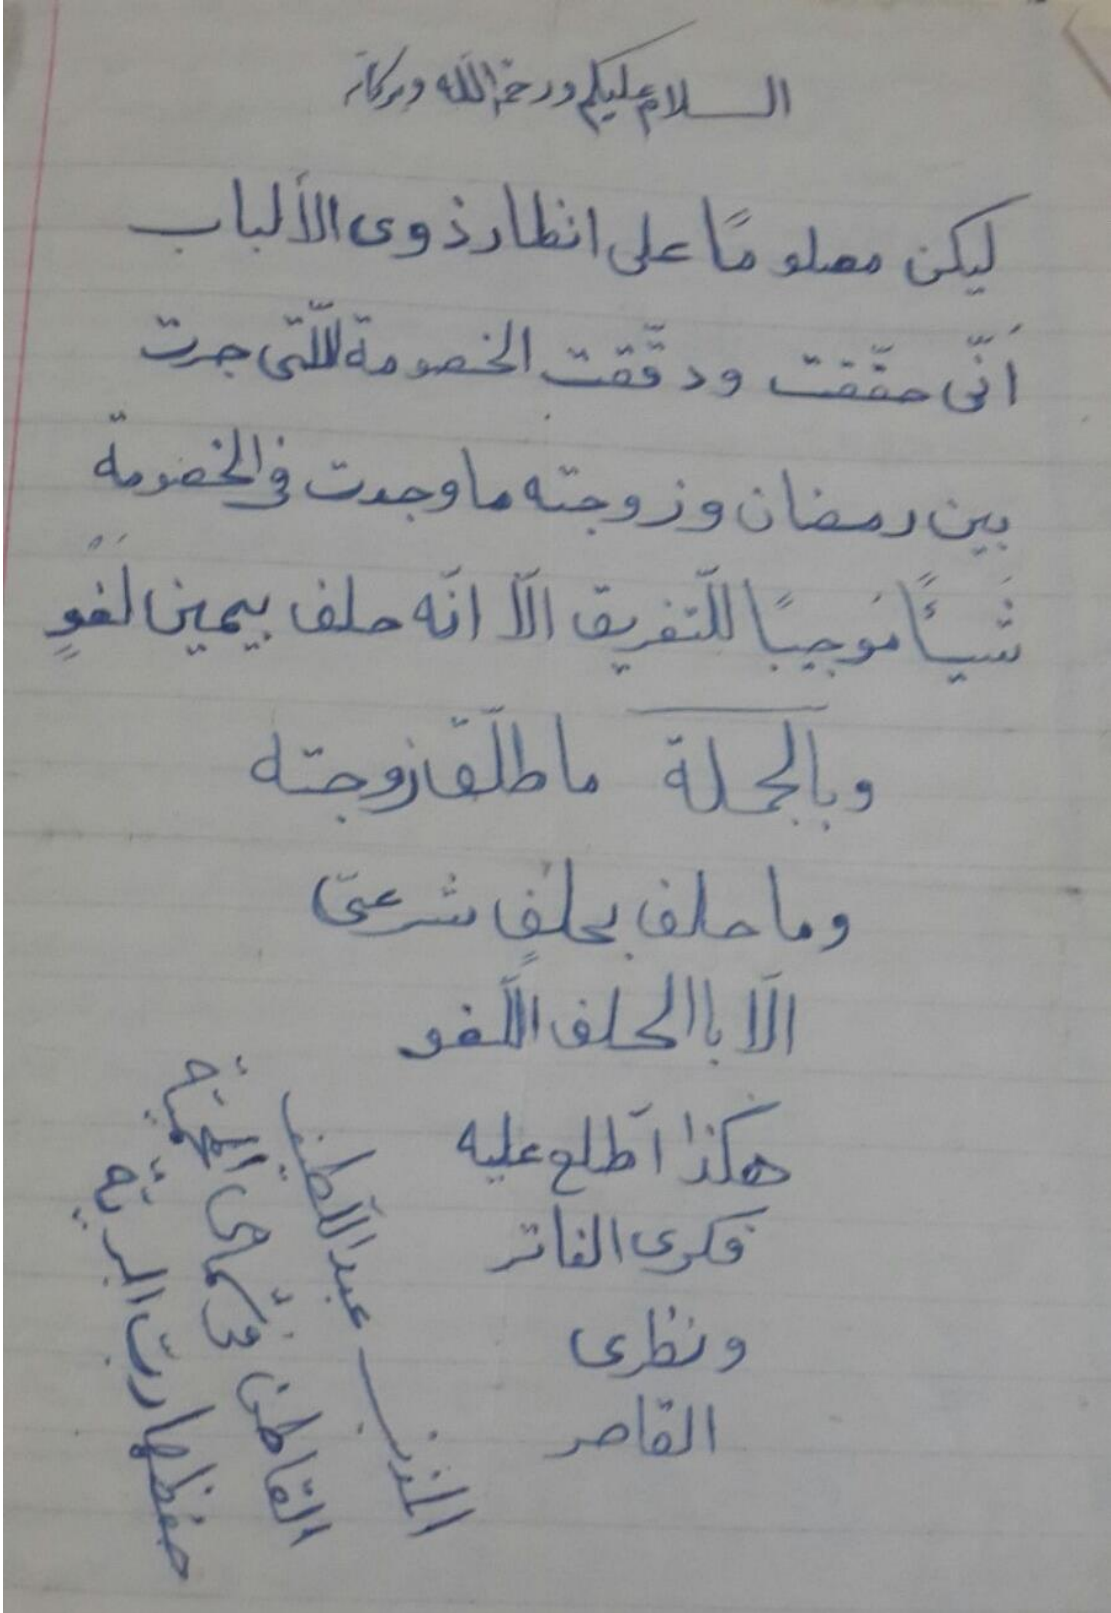 السلام عليكم ورحمة الله وبركاته
ليكن معلومًا على انظار ذوى الألباب
أنّى حقّقت ودقّقت الخصومة اللّتى جرت
بين رمضان وزوجته ما وجدت فى الخصومة
شَيئًا مُوجِبًا للّتفريق الّا انّه حلف بيمين لَغْوٍ
وبالجملة ما طلّق زوجته
وما حلف بحلفٍ شرعىّ
الّا باالحلف اللّغو
هكذا اطّلع عليه
فكرى الفاتر
ونظرى
القاصر
المذنب عبد اللّطيف
القاطن فى سماحى المحميّة
حفظها ربّ البريّة